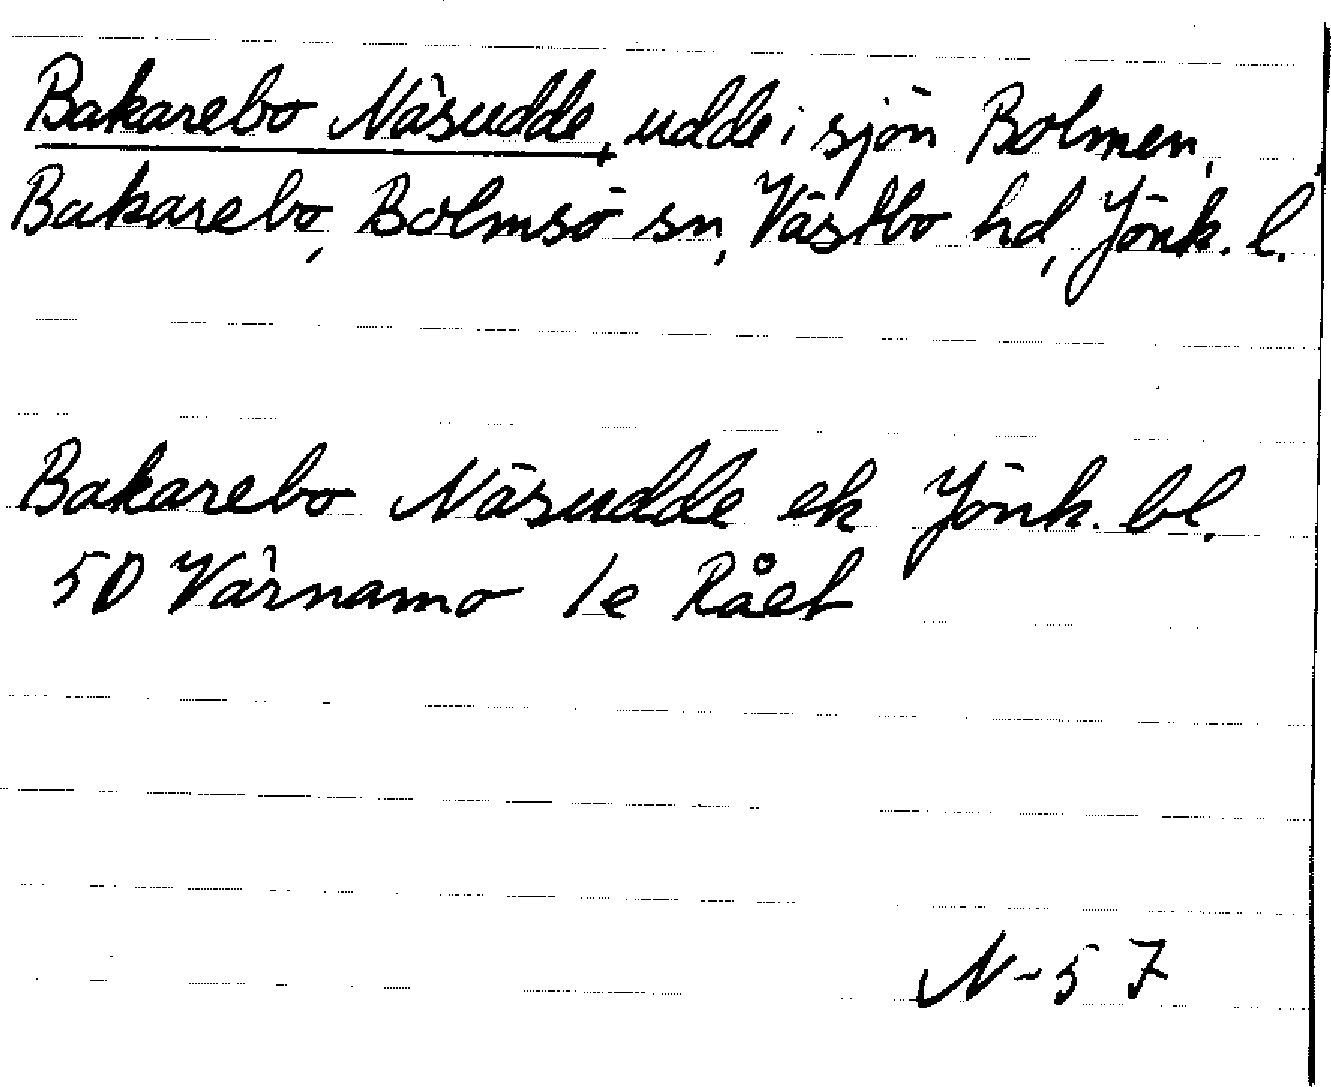 Bakarebo Näsudde, udde i sjön Bolmen,
Bakarebo, Bolmsö sn, Västbo hd, Jönk. l.
Bakarebo Näsudde ek Jönk. bl.
5D Värnamo 1e RåeL
N-57